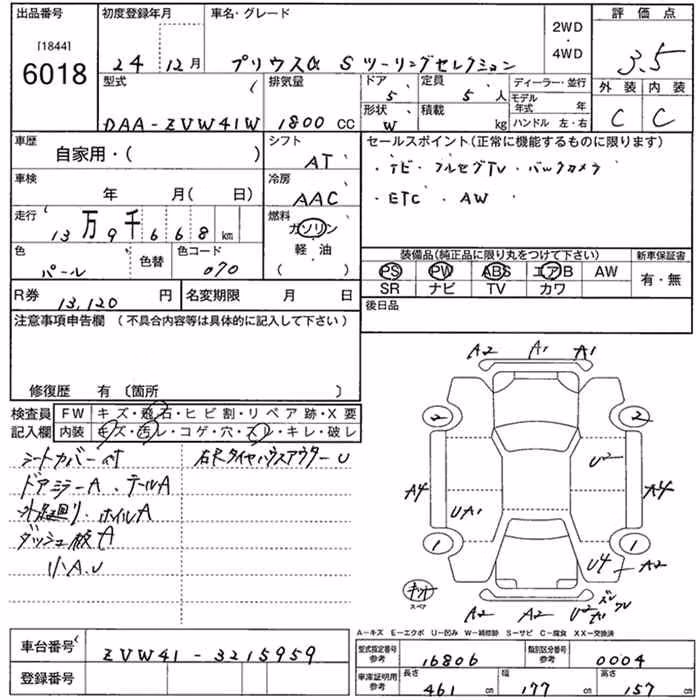 出品番号 初度登録年月 車名・グレード 2WD 評価点
[1844] 24 12月 プリウスα Sツーリングセレクション 4WD 3.5
6018
型式 排気量 ドア 5 定員 5人 ディーラー・並行 外装 内装
DAA-ZVW41W 1800 CC 形状 W 積載 kg モデル年式 年 ハンドル 左・右 C C
車歴 自家用・( ) シフト AT セールスポイント(正常に機能するものに限ります)
車検 年 月( 日) 冷房 AAC ・ナビ・フルセグTV・バックカメラ
・ETC・AW
走行 13万9千668km 燃料 ガソリン 軽・油 ( )
色 パール 色替 色コード 070
装備品(純正品に限り丸をつけて下さい) 新車保証書
PS PW ABS エアB AW 有・無
SR ナビ TV カワ
R券 13,120円 名変期限 月 日 後日品
注意事項申告欄 (不具合内容等は具体的に記入して下さい)
修復歴 有 〔箇所 〕
検査員 FW キズ・飛石・ヒビ割・リペア跡・X要
記入欄 内装 キズ・汚レ・コゲ・穴・スレ・キレ・破レ
シートカバー付 右RタイヤハウスアウターU
ドアミラーA、テールA
ホイルA
ダッシュ板A
小A.U
A2 A1 A1
2 2
U2
A4 A4
UA1
1 1
U4 A2
キット
スペア
A2 A2 U2
A-キズ E-エクボ U-凹み W-補修跡 S-サビ C-腐食 XX-交換済
車台番号 ZVW41-3215959
登録番号
型式指定番号 参考 16806 類別区分番号 参考 0004
車庫証明用 参考 長さ 461 幅 177 高さ 157